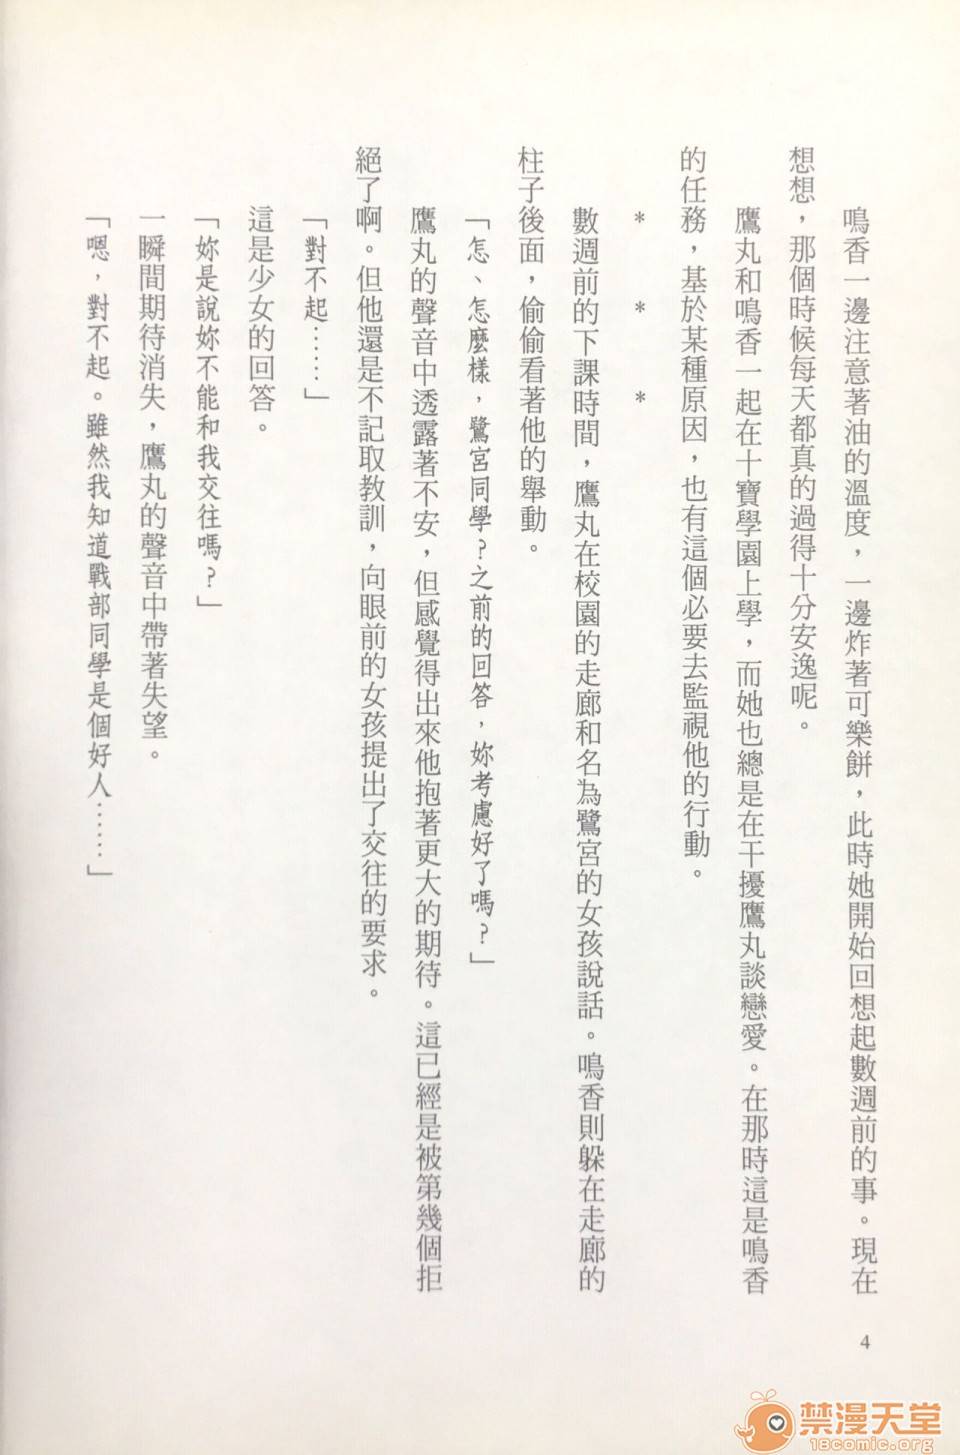 鳴香一邊注意著油的溫度，一邊炸著可樂餅，此時她開始回想起數週前的事。現在
想想，那個時候每天都真的過得十分安逸呢。
鷹丸和鳴香一起在十寶學園上學，而她也總是在干擾鷹丸談戀愛。在那時這是鳴香
的任務，基於某種原因，也有這個必要去監視他的行動。
＊　＊　＊
數週前的下課時間，鷹丸在校園的走廊和名為鷺宮的女孩說話。鳴香則躲在走廊的
柱子後面，偷偷看著他的舉動。
「怎、怎麼樣，鷺宮同學？之前的回答，妳考慮好了嗎？」
鷹丸的聲音中透露著不安，但感覺得出來他抱著更大的期待。這已經是被第幾個拒
絕了啊。但他還是不記取教訓，向眼前的女孩提出了交往的要求。
「對不起……」
這是少女的回答。
「妳是說妳不能和我交往嗎？」
一瞬間期待消失，鷹丸的聲音中帶著失望。
「嗯，對不起。雖然我知道戰部同學是個好人……」
4
禁漫天堂
18comic.org